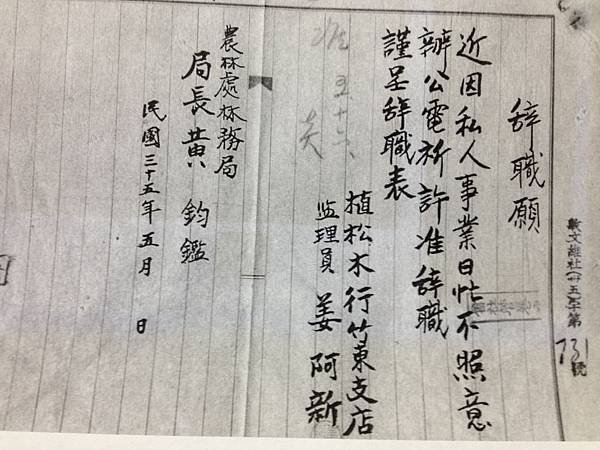 辞職願
近因私人事業日忙不照意
辦公電祈許准辞職
謹呈辞職表
植松木行竹東支店
监理員 姜阿新
准 五十六
農林處林務局
局長黄 鈞鑑
民國三十五年五月 日
第731號